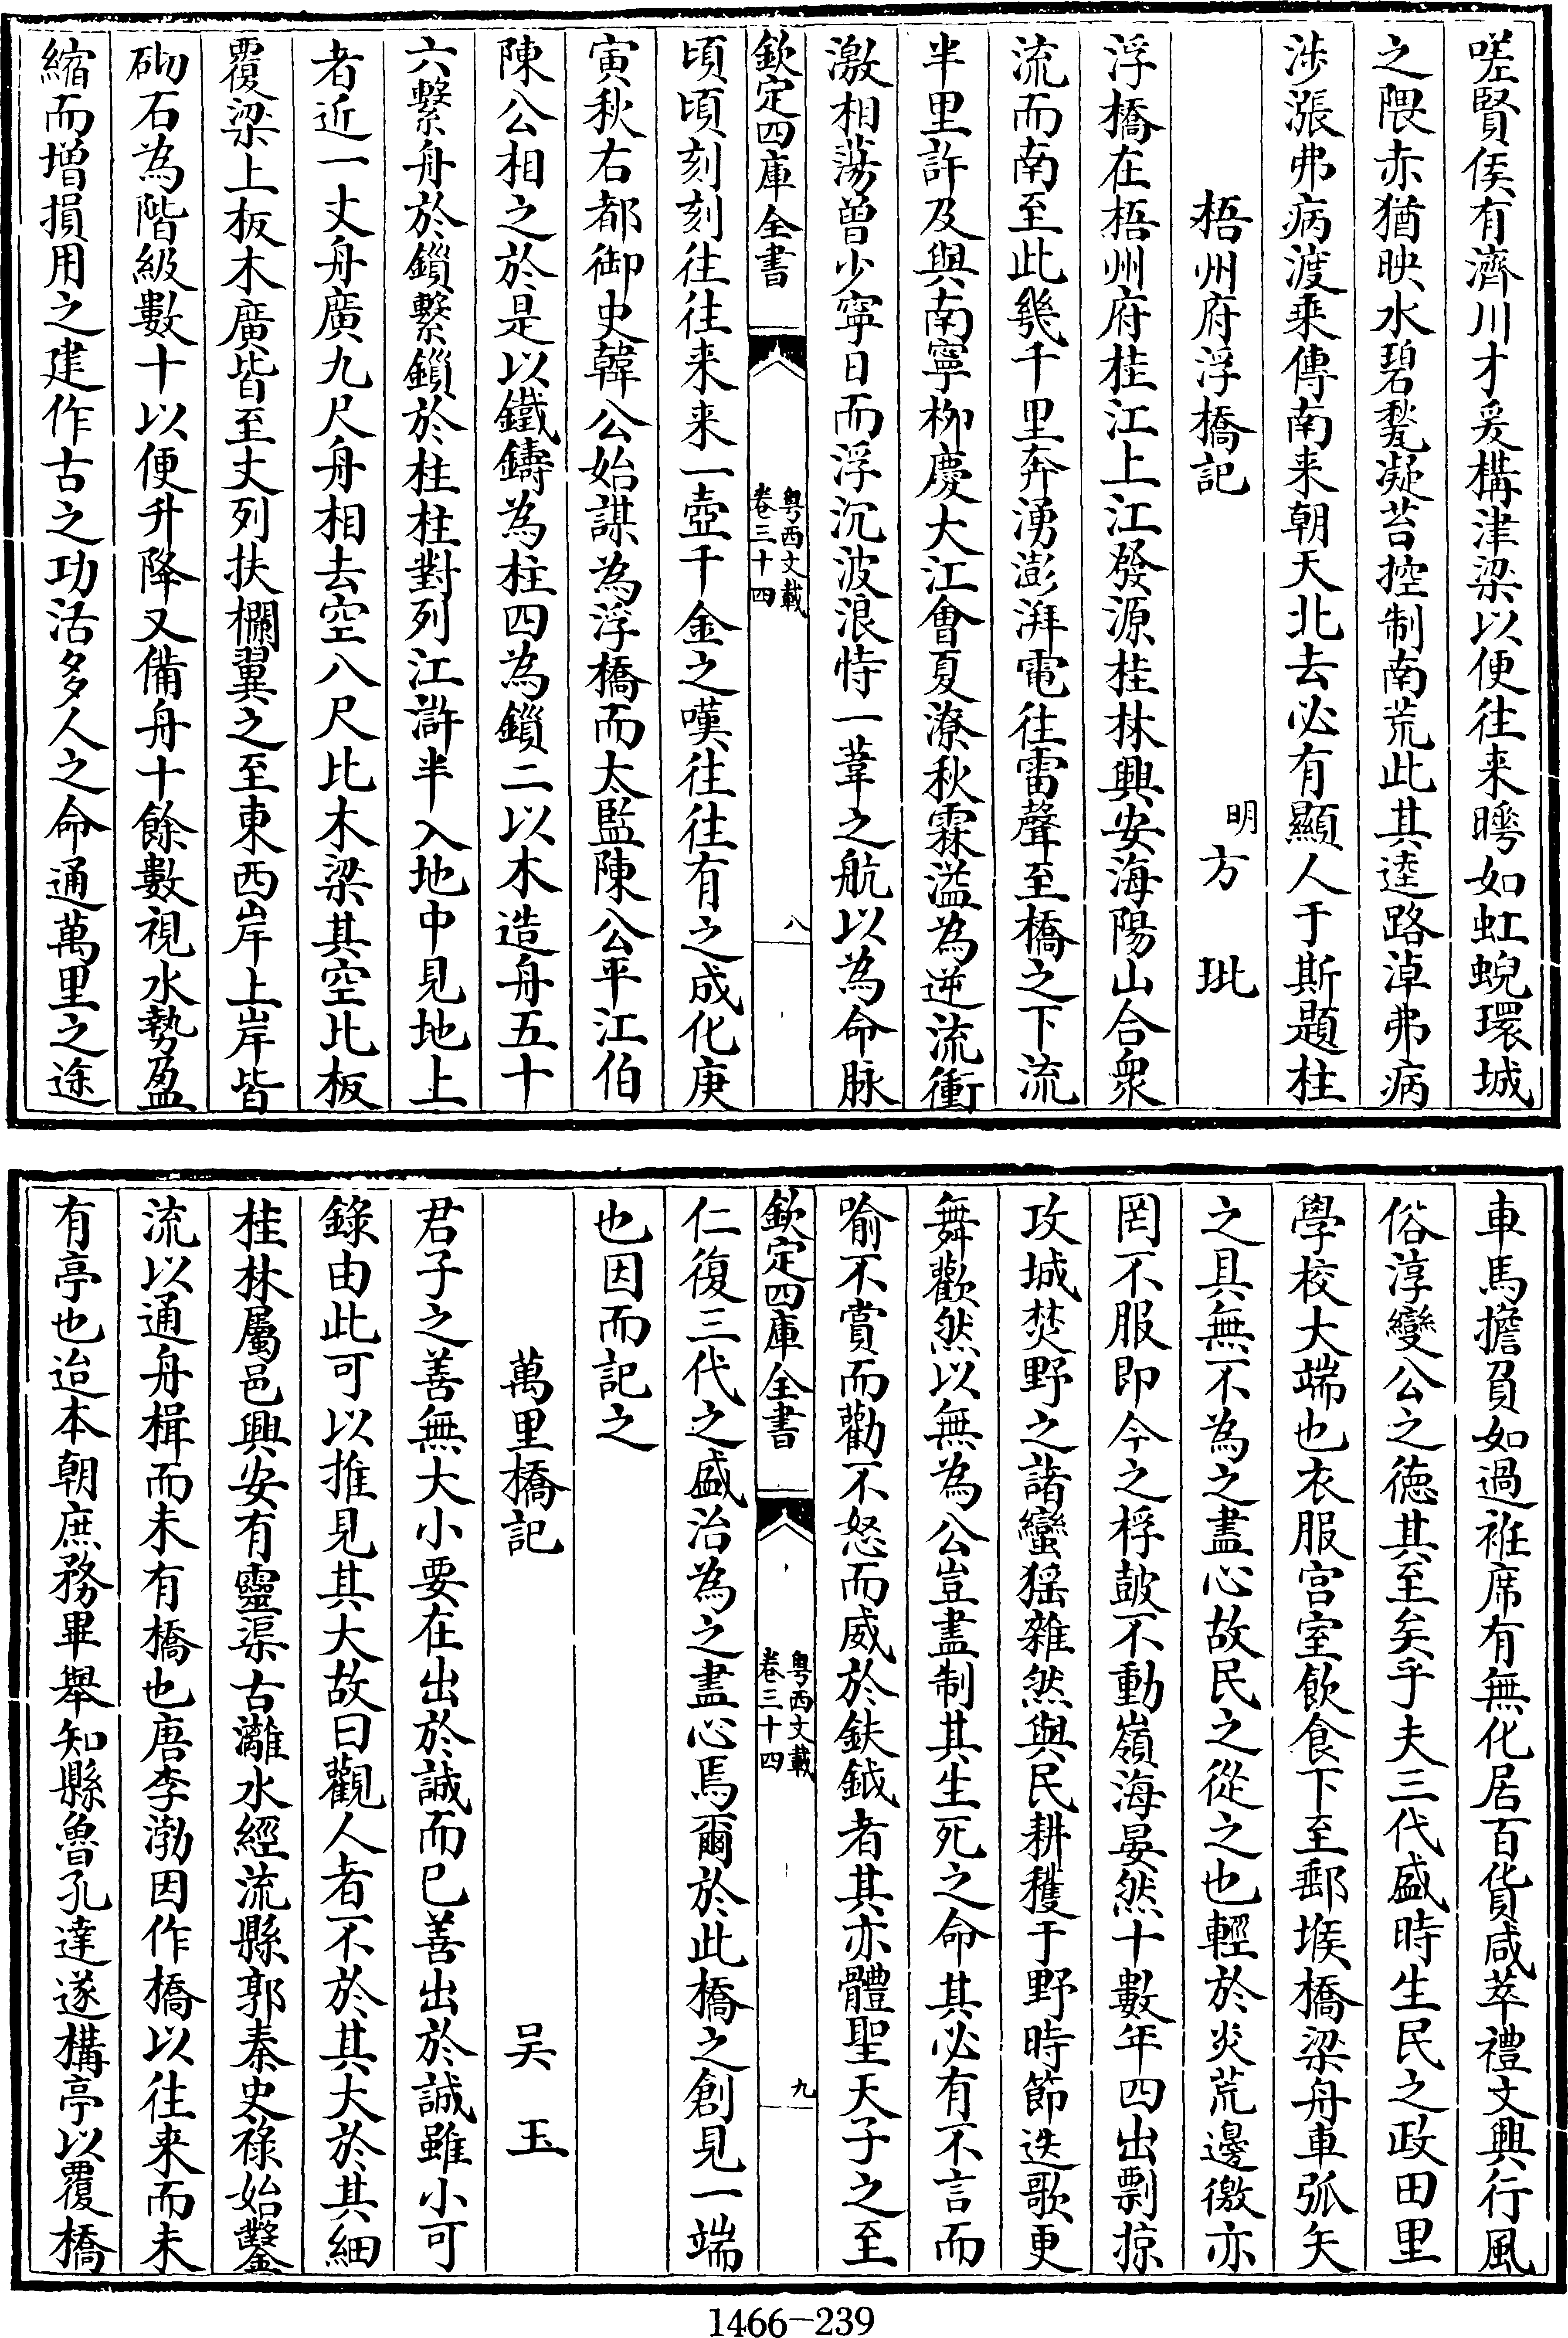 嗟賢侯有濟川才爰構津梁以便往来睥如虹蜺環城
之隈赤猶映水碧甃凝苔控制南荒此其逵路淖弗病
涉漲弗病渡乗傳南来朝天北去必有顯人于斯題柱
梧州府浮橋記
明方玭
浮橋在梧州府桂江上江發源桂林興安海陽山合衆
流而南至此幾千里奔湧澎湃電往雷聲至橋之下流
半里許及與南寧栁慶大江會夏潦秋霖溢為逆流衝
激相蕩曾少寧日而浮沉波浪恃一葦之航以為命脉
欽定四庫全書
粤西文載
卷三十四
八
頃頃刻刻往往来来一壺千金之嘆往往有之成化庚
寅秋右都御史韓公始謀為浮橋而太監陳公平江伯
陳公相之於是以鐵鑄為柱四為鎻二以木造舟五十
六繫舟於鎻繫鎻於柱柱對列江滸半入地中見地上
者近一丈舟廣九尺舟相去空八尺比木梁其空比板
覆梁上板木廣皆至丈列扶欄翼之至東西岸上岸皆
砌石為階級數十以便升降又備舟十餘數視水勢盈
縮而增損用之建作古之功活多人之命通萬里之途
車馬擔負如過袵席有無化居百貨咸萃禮文興行風
俗淳變公之徳其至矣乎夫三代盛時生民之政田里
學校大端也衣服宫室飲食下至郵堠橋梁舟車弧矢
之具無不為之盡心故民之從之也輕於炎荒邊徼亦
罔不服即今之桴鼓不動嶺海晏然十數年四出剽掠
攻城焚野之諸蠻猺雜然與民耕穫于野時節迭歌更
舞歡然以無為公豈盡制其生死之命其必有不言而
喻不賞而勸不怒而威於鈇鉞者其亦體聖天子之至
欽定四庫全書
粤西文載
卷三十四
九
仁復三代之盛治為之盡心焉爾於此橋之創見一端
也因而記之
萬里橋記
吴玉
君子之善無大小要在出於誠而已善出於誠雖小可
錄由此可以推見其大故曰觀人者不於其大於其細
桂林屬邑興安有靈渠古灕水經流縣郭秦史禄始鑿
流以通舟楫而未有橋也唐李渤因作橋以往来而未
有亭也迨本朝庶務畢舉知縣魯孔達遂構亭以覆橋
1466-239